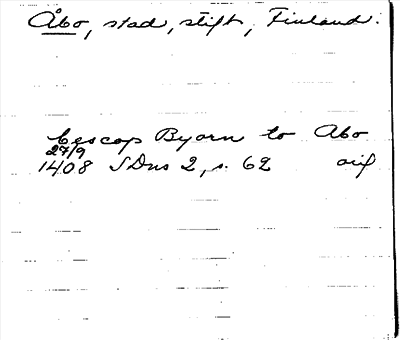 Åbo, stad, stift, Finland.
bescop Byorn to Abo
27/9
1408 SDns 2, s. 62 orig